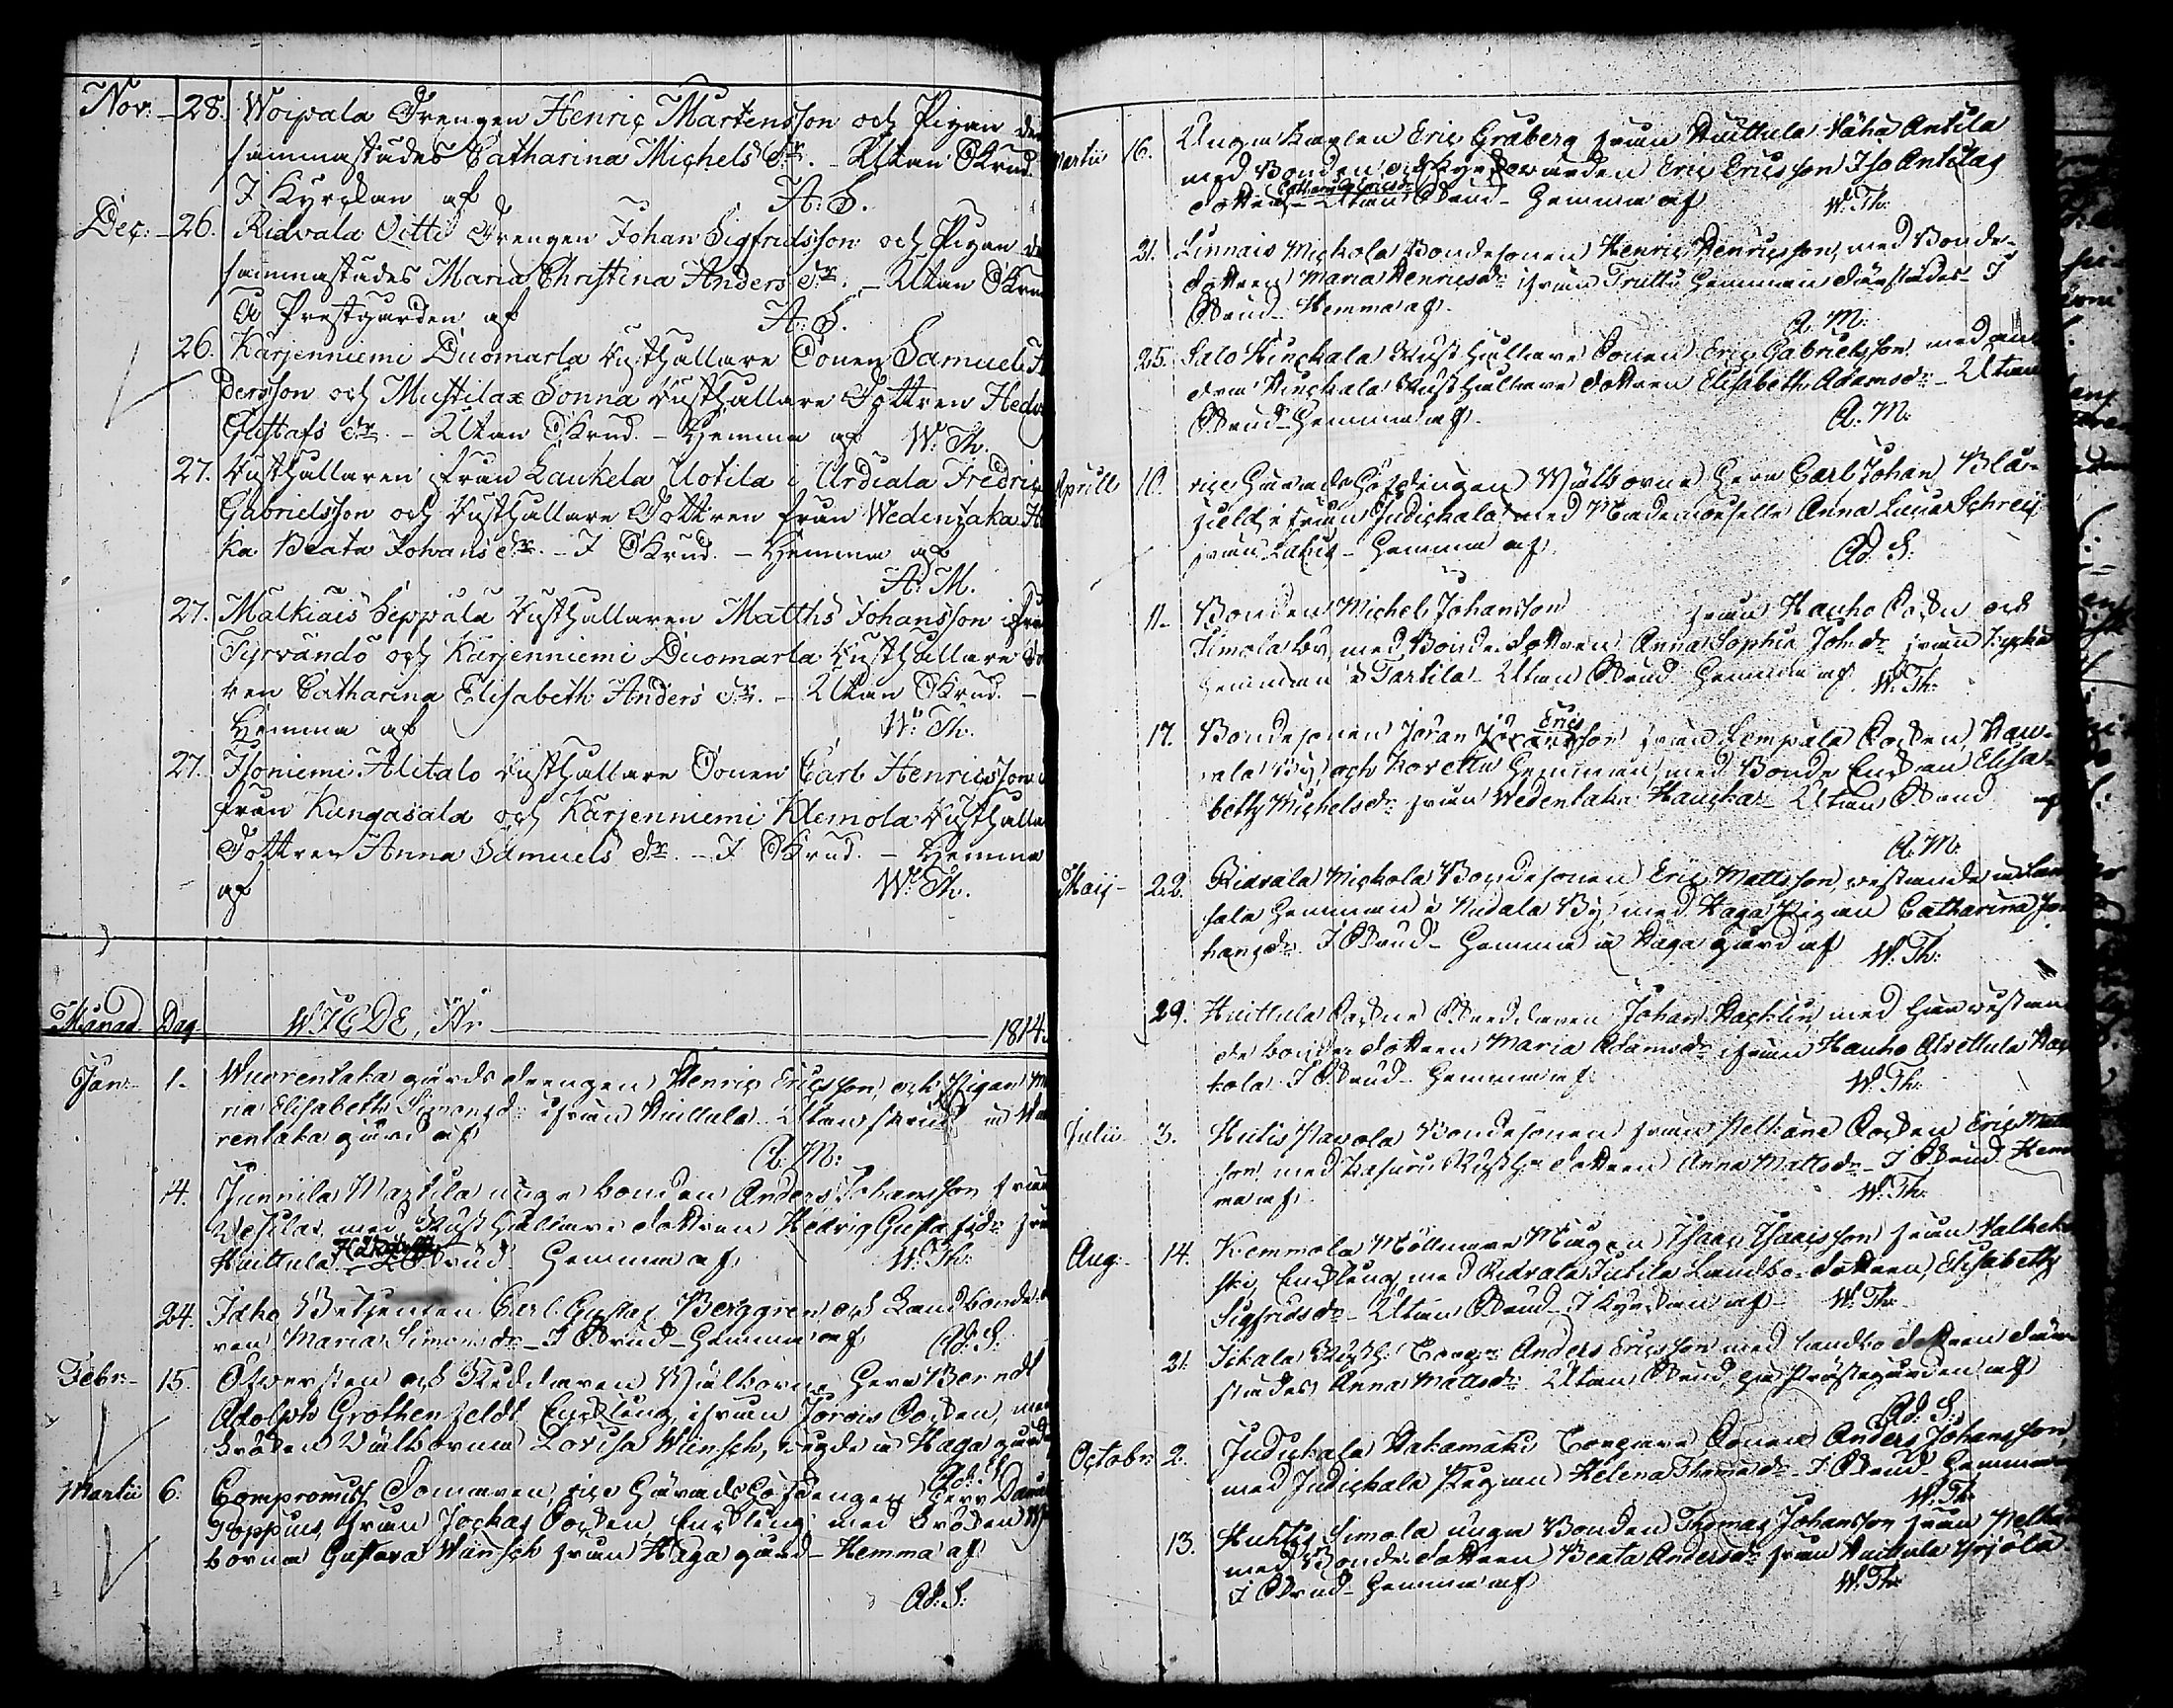 Nov: - 28. Woipala Drengen Henric Mårtensson och Pigan der
sammastädes Catharina Michels dr. - Utan Skrud.
I Kyrckan af A: S.
Dec: - 26. Ridvala Oitti Drengen Johan Sigfridsson och Pigan
sammastädes Maria Christina Anders dr. - Utan Skrud
På Prestgården af A: S.
26. Karjenniemi Duomarla Rusthållare Sonen Samuel
dersson och Mustila Sonna Rusthållare Dottren Hedv
Gustafs dr. - Utan Skrud. - Hemma af W: Th.
27. Rusthållaren ifrån Laukela Uotila i Urdiala Fredric
Gabrielsson och Rusthållare Dottren från Wedentaka
ka Beata Johans dr. - I Skrud. - Hemma af
A: M.
27. Malkiais Seppälä Rusthållaren Matths Johansson ifrån
Tyrvändö och Karjenniemi Duomarla Rusthållare
ren Catharina Elisabeth Anders dr. - Utan Skrud. -
Hemma af W: Th.
27. Isoniemi Alitalo Rusthållare Sonen Carl Henricsson
från Kangasala och Karjenniemi Klemola Rusthålla
Dottren Anna Samuels dr. - I Skrud. - Hemma
af W: Th.
Månad Dag WIGDE, År 1814.
Jan: 1. Wuorentaka gårds drengen Henric Ericsson och Pigan Ma
ria Elisabeth Simonsdr ifrån Huittula Utan skrud i Wuo
rentaka gård af
A: M:
14. Junnila Marttila unge bonden Anders Johansson från
med Rusthållare dottren Hedvig Gustafsdr från
Huittula Skrud. Hemma af W: Th:
24. Idho Betjenten Carl Gustaf Berggren och Landbonde
ren Maria Simonsdr - I Skrud - Hemma af Ad: S:
Febr: 15. Öfversten och Riddaren Wälborne Herr Berndt
Adolph Grothenfeldt Enckling, ifrån Jorois Socken, med
Fröken Wälborna Lovisa Wünsch, vigde i Haga gård
Ad: S:
Martii 6. Compromiss Domaren, vice Häradshöfdingen Herr
Toppius från Jockas Socken, Enckling med Fröken Wäl
borna Gustava Wünsch från Haga gård - Hemma af
Ad: S:
Martii 16. Unga Karlen Eric Gråberg från Huittula Vähä Antila
med Bonden och Kyrkovärden Eric Ericsson Iso Antilas
dotter Catharina Ericsdr Utan Skrud - Hemma af W: Th:
21. Linnais Mickola Bondesonen Henric Henricsson, med Bonde-
dottren Maria Henricsdr ifrån Truttu Hemman därstädes - I
Skrud - Hemma af.
A: M:
25. Salo Kinckala Rusthållare Sonen Eric Gabrielsson med
dra Kinckala Rusthållare dottren Elisabeth Adamsdr - Utan
Skrud - Hemma af. A: M:
Aprill 10. vice Häradshöfdingen Wälborne Herr Carl Johan Blå-
field, ifrån Judickala med Mademoiselle Anna Lovisa Schreij
från - Hemma af. Ad: S:
11. Bonden Michel Johansson från Hauho Socken och
Simola by, med Bondedottren Anna Sophia Joh:dr från
Hemman i Tartila Utan Skrud Hemma af W: Th:
17. Bondesonen Jöran Ericsson från Lempälä Socken,
ala By och Hovettu Hemman, med Bonde Enckan Elisa-
beth Michelsdr från Wedentaka Haucka - Utan Skrud af
A: M:
Maij - 22. Ridvala Mickola Bondesonen Eric Mattsson, vistande i
sala Hemman i Nudala By, med Haga Pigan Catharina Jo
hansdr - I Skrud - Hemma i Haga gård af W: Th:
29. Huittula Sockne Skreddaren Johan Hacklin, med här vistan
de bonde dottren Maria Adamsdr ifrån Hauho Alvettula
kola - I Skrud - Hemma af. W: Th:
Julii 3. Hutis Pavola Bondesonen från Pelkäne Socken Eric Matts
son med Rusth: dottren Anna Mattsdr - I Skrud Hem
ma af. W: Th:
Aug: 14. Kemmola Möllnare Mågen Isaac Isaacsson från
ski, Enckling, med Ridvala Lundbo dottren Elisabeth
Sigfridsdr - Utan Skrud - I Kyrckan af - W: Th:
21. Sikala Rusth: Anders Ericsson med landbo dottren där
städes Anna Mattsdr - Utan Skrud på Prästegården af
Ad: S:
Octobr: 2. Judickala Hakamäki Sonen Anders Johansson,
med Judickala Pigan Helena Thomædr - I Skrud - Hemma
W: Th:
13. Huhtis Simola unga Bonden Thomas Johansson från Pelkäne
med Bonde dottren Beata Andersdr från Huittula Yrjölä
I Skrud - Hemma af W: Th: